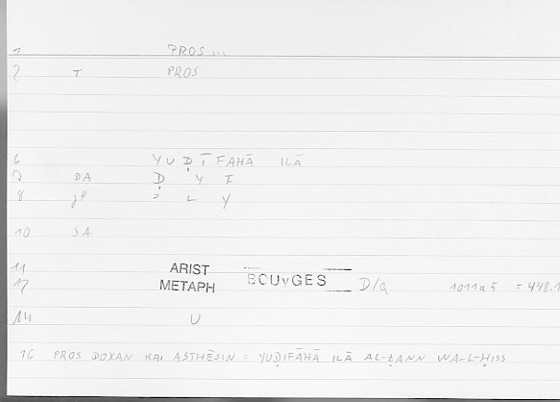 1 PROS ...
2 T PROS
6 YUḌĪFAHĀ ILĀ
7 DA Ḍ Y I
8 JP ' L Y
10 SA
11 ARIST
12 METAPH BOUYGES D/a 1011a5 = 448.1
14 U
16 PROS DOXAN KAI ASTHĒSIN = YUḌIFĀHĀ ILĀ AL-ẒANN WA-L-ḤISS